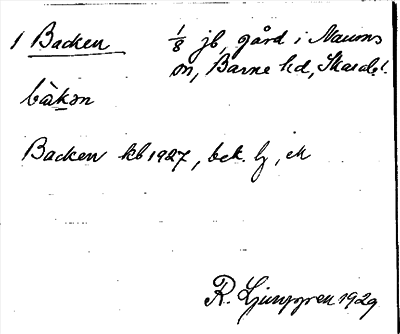 1 Backen 1/8 jb, gård i Naums
sn, Barne hd, Skarab.l.
bàkən
Backen kb 1927, bek. lj, ek
R. Ljunggren 1929